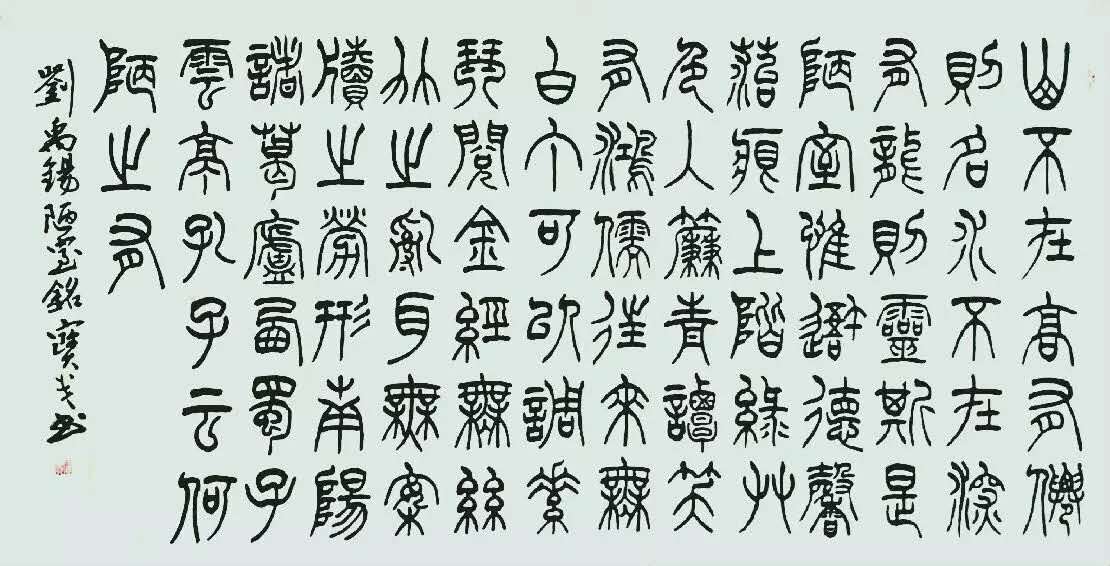 山不在高有僊
則名水不在深
有龍則靈斯是
陋室惟吾德馨
菭痕上階綠艸
色入簾青譚笑
有鴻儒往來無
白丁可以調素
琴閱金經無絲
竹之亂耳無案
牘之勞形南陽
諸葛廬西蜀子
雲亭孔子云何
陋之有
劉禹錫陋室銘寶书